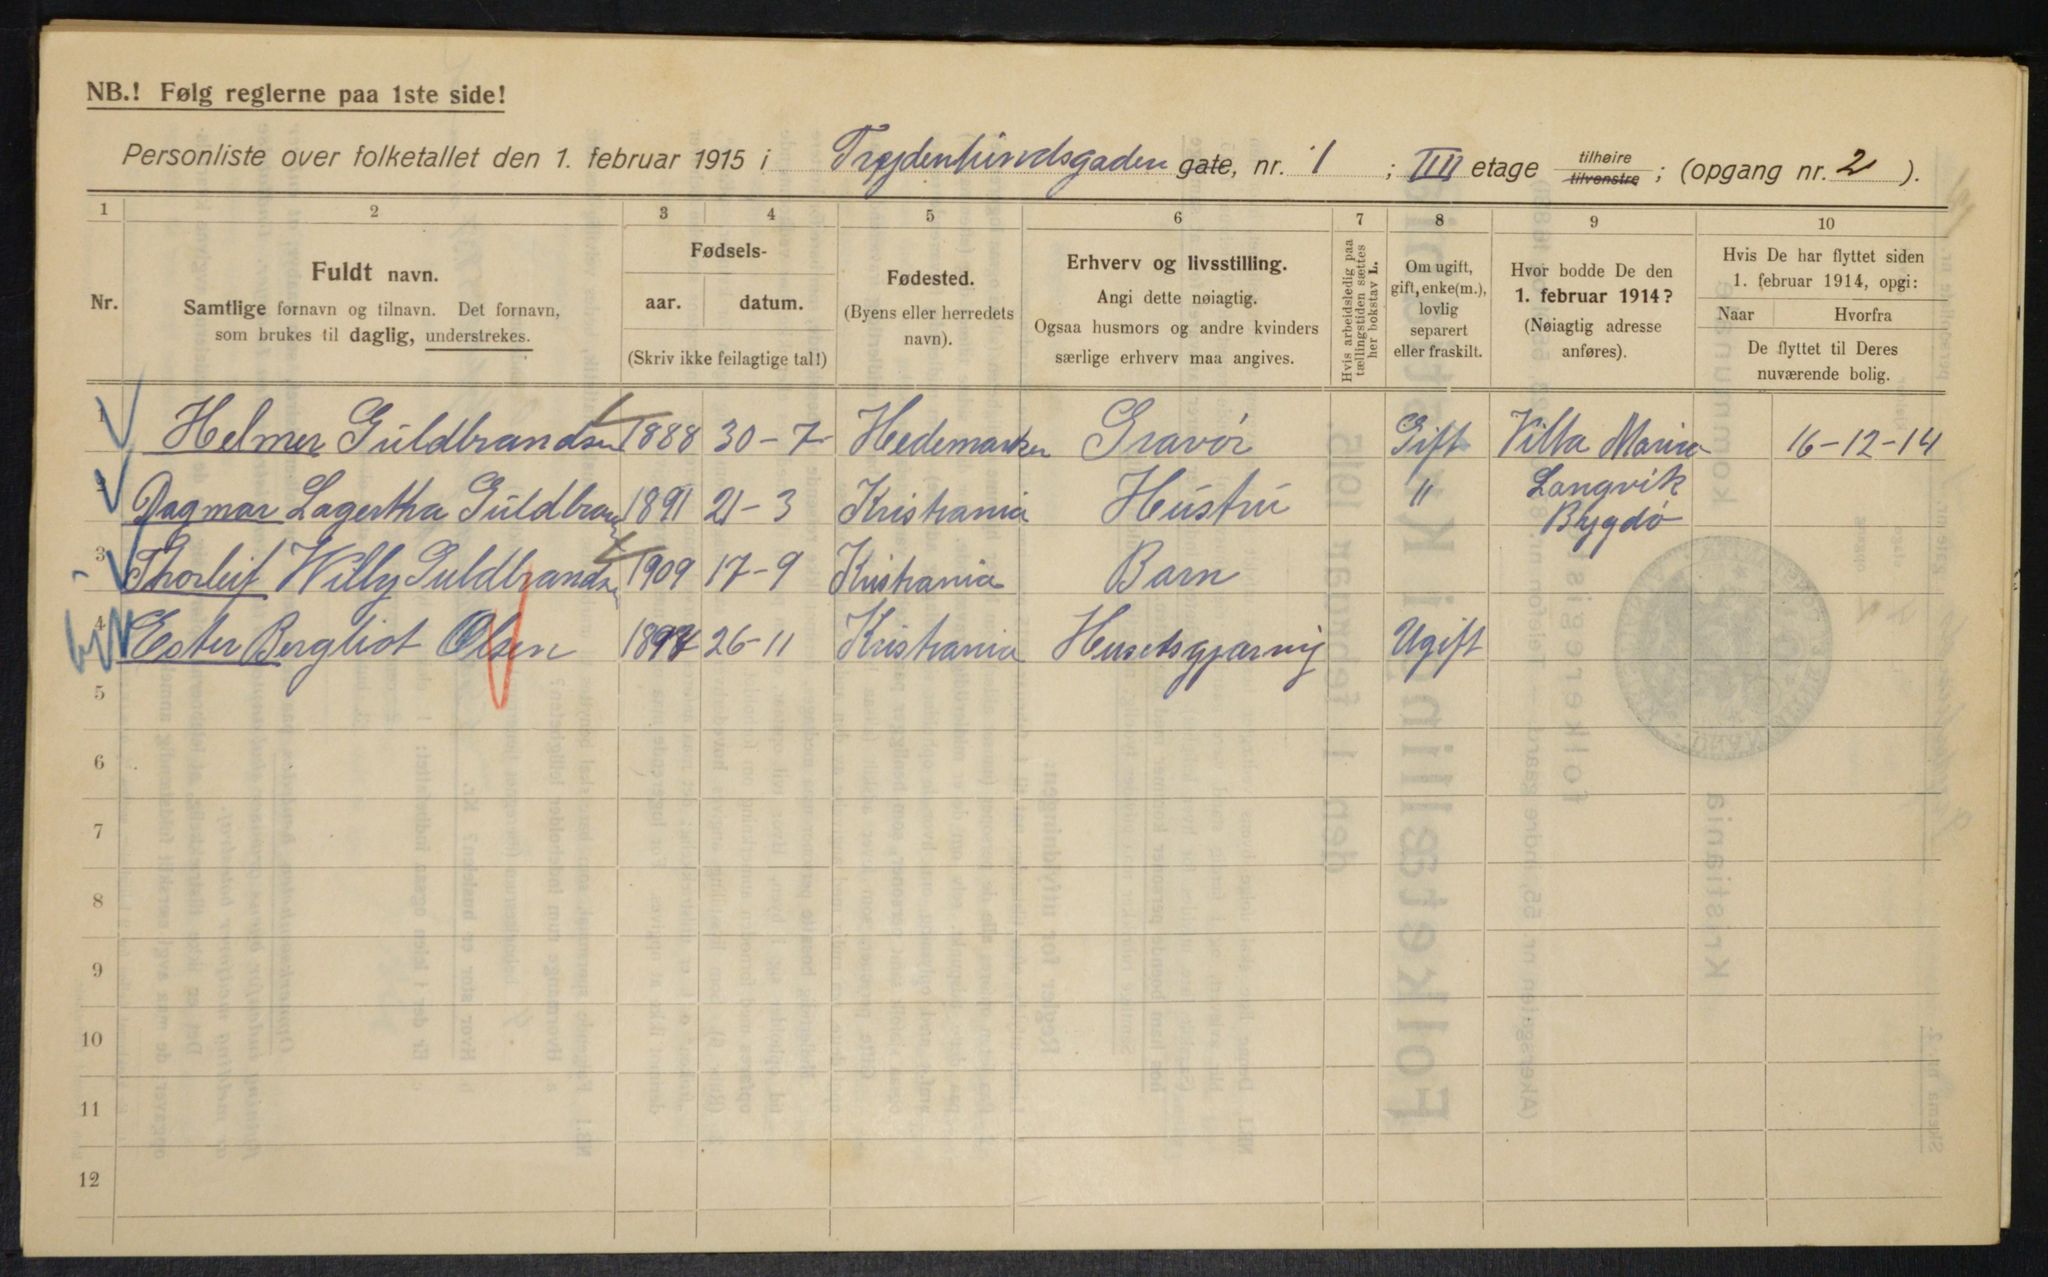 NB.! Følg reglerne paa 1ste side!
Personliste over folketallet den 1. februar 1915 i gate, nr. 1 ; IIII etage tilhøire tilvenstre ; (opgang nr. 2 ).
1 2 3 4 5 6 7 8 9 10
Nr.
Fuldt navn.
Samtlige fornavn og tilnavn. Det fornavn,
som brukes til daglig, understrekes.
Fødsels-
aar. datum.
(Skriv ikke feilagtige tal!)
Fødested.
(Byens eller herredets
navn).
Erhverv og livsstilling.
Angi dette nøiagtig.
Ogsaa husmors og andre kvinders
særlige erhverv maa angives.
Hvis arbeidsledig paa
tællingstiden sættes
her bokstav L.
Om ugift,
gift, enke(m.),
lovlig
separert
eller fraskilt.
Hvor bodde De den
1. februar 1914?
(Nøiagtig adresse
anføres).
Hvis De har flyttet siden
1. februar 1914, opgi:
Naar Hvorfra
De flyttet til Deres
nuværende bolig.
1 Helmer Guldbrandsen 1888 30-7 Hedemarken Gravør Gift Villa Marina 16-12-14
2 Dagmar Lagertha Guldbrandsen 1891 21-3 Kristiania Hustru " Langvik
Bygdø
3 Thorleif Willy Guldbrandsen 1909 17-9 Kristiania Barn
4 Ester Bergliot Olsen 26-11 Kristiania Husetsgjærning Ugift
5
6
7
8
9
10
11
12